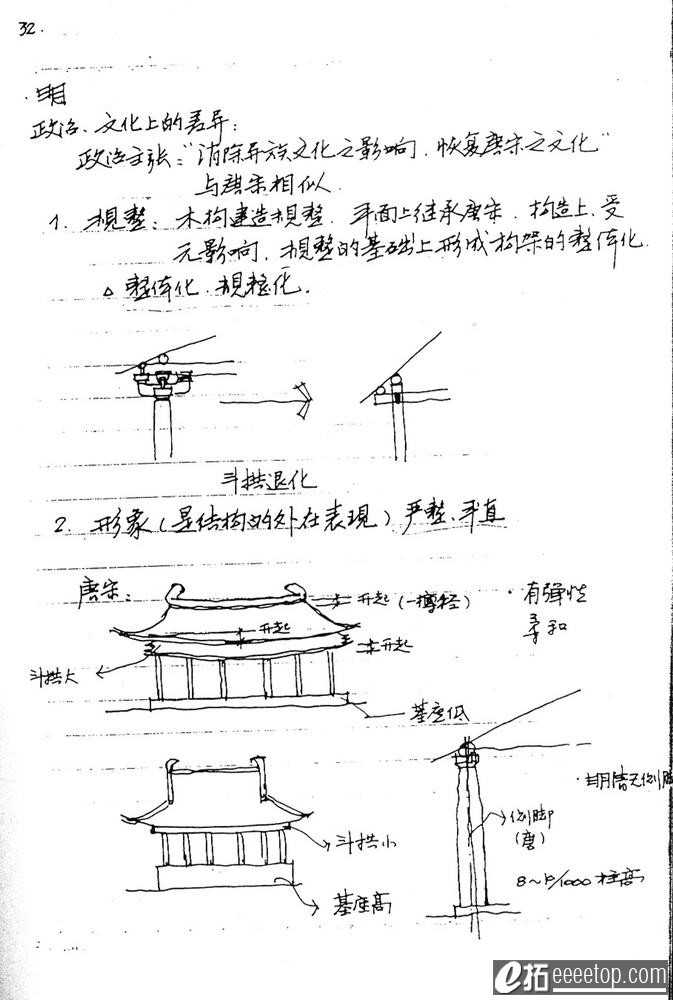 32.
·明
政治、文化上的差异：
政治主张："消除异族文化之影响，恢复唐宋之文化"
与唐宋相似.
1. 規整：木构建造規整，平面上继承唐宋，构造上、受
元影响，規整的基础上形成构架的整体化.
△ 整体化、規整化.
斗拱退化
2. 形象（是结构的外在表現）严整、平直
唐宋：
升起（一槫径）
·有弹性
柔和
升起
升起
斗拱大
基座低
·明清无侧脚
斗拱小
侧脚
（唐）
1000 柱高
基座高
e拓 eeeetop.com